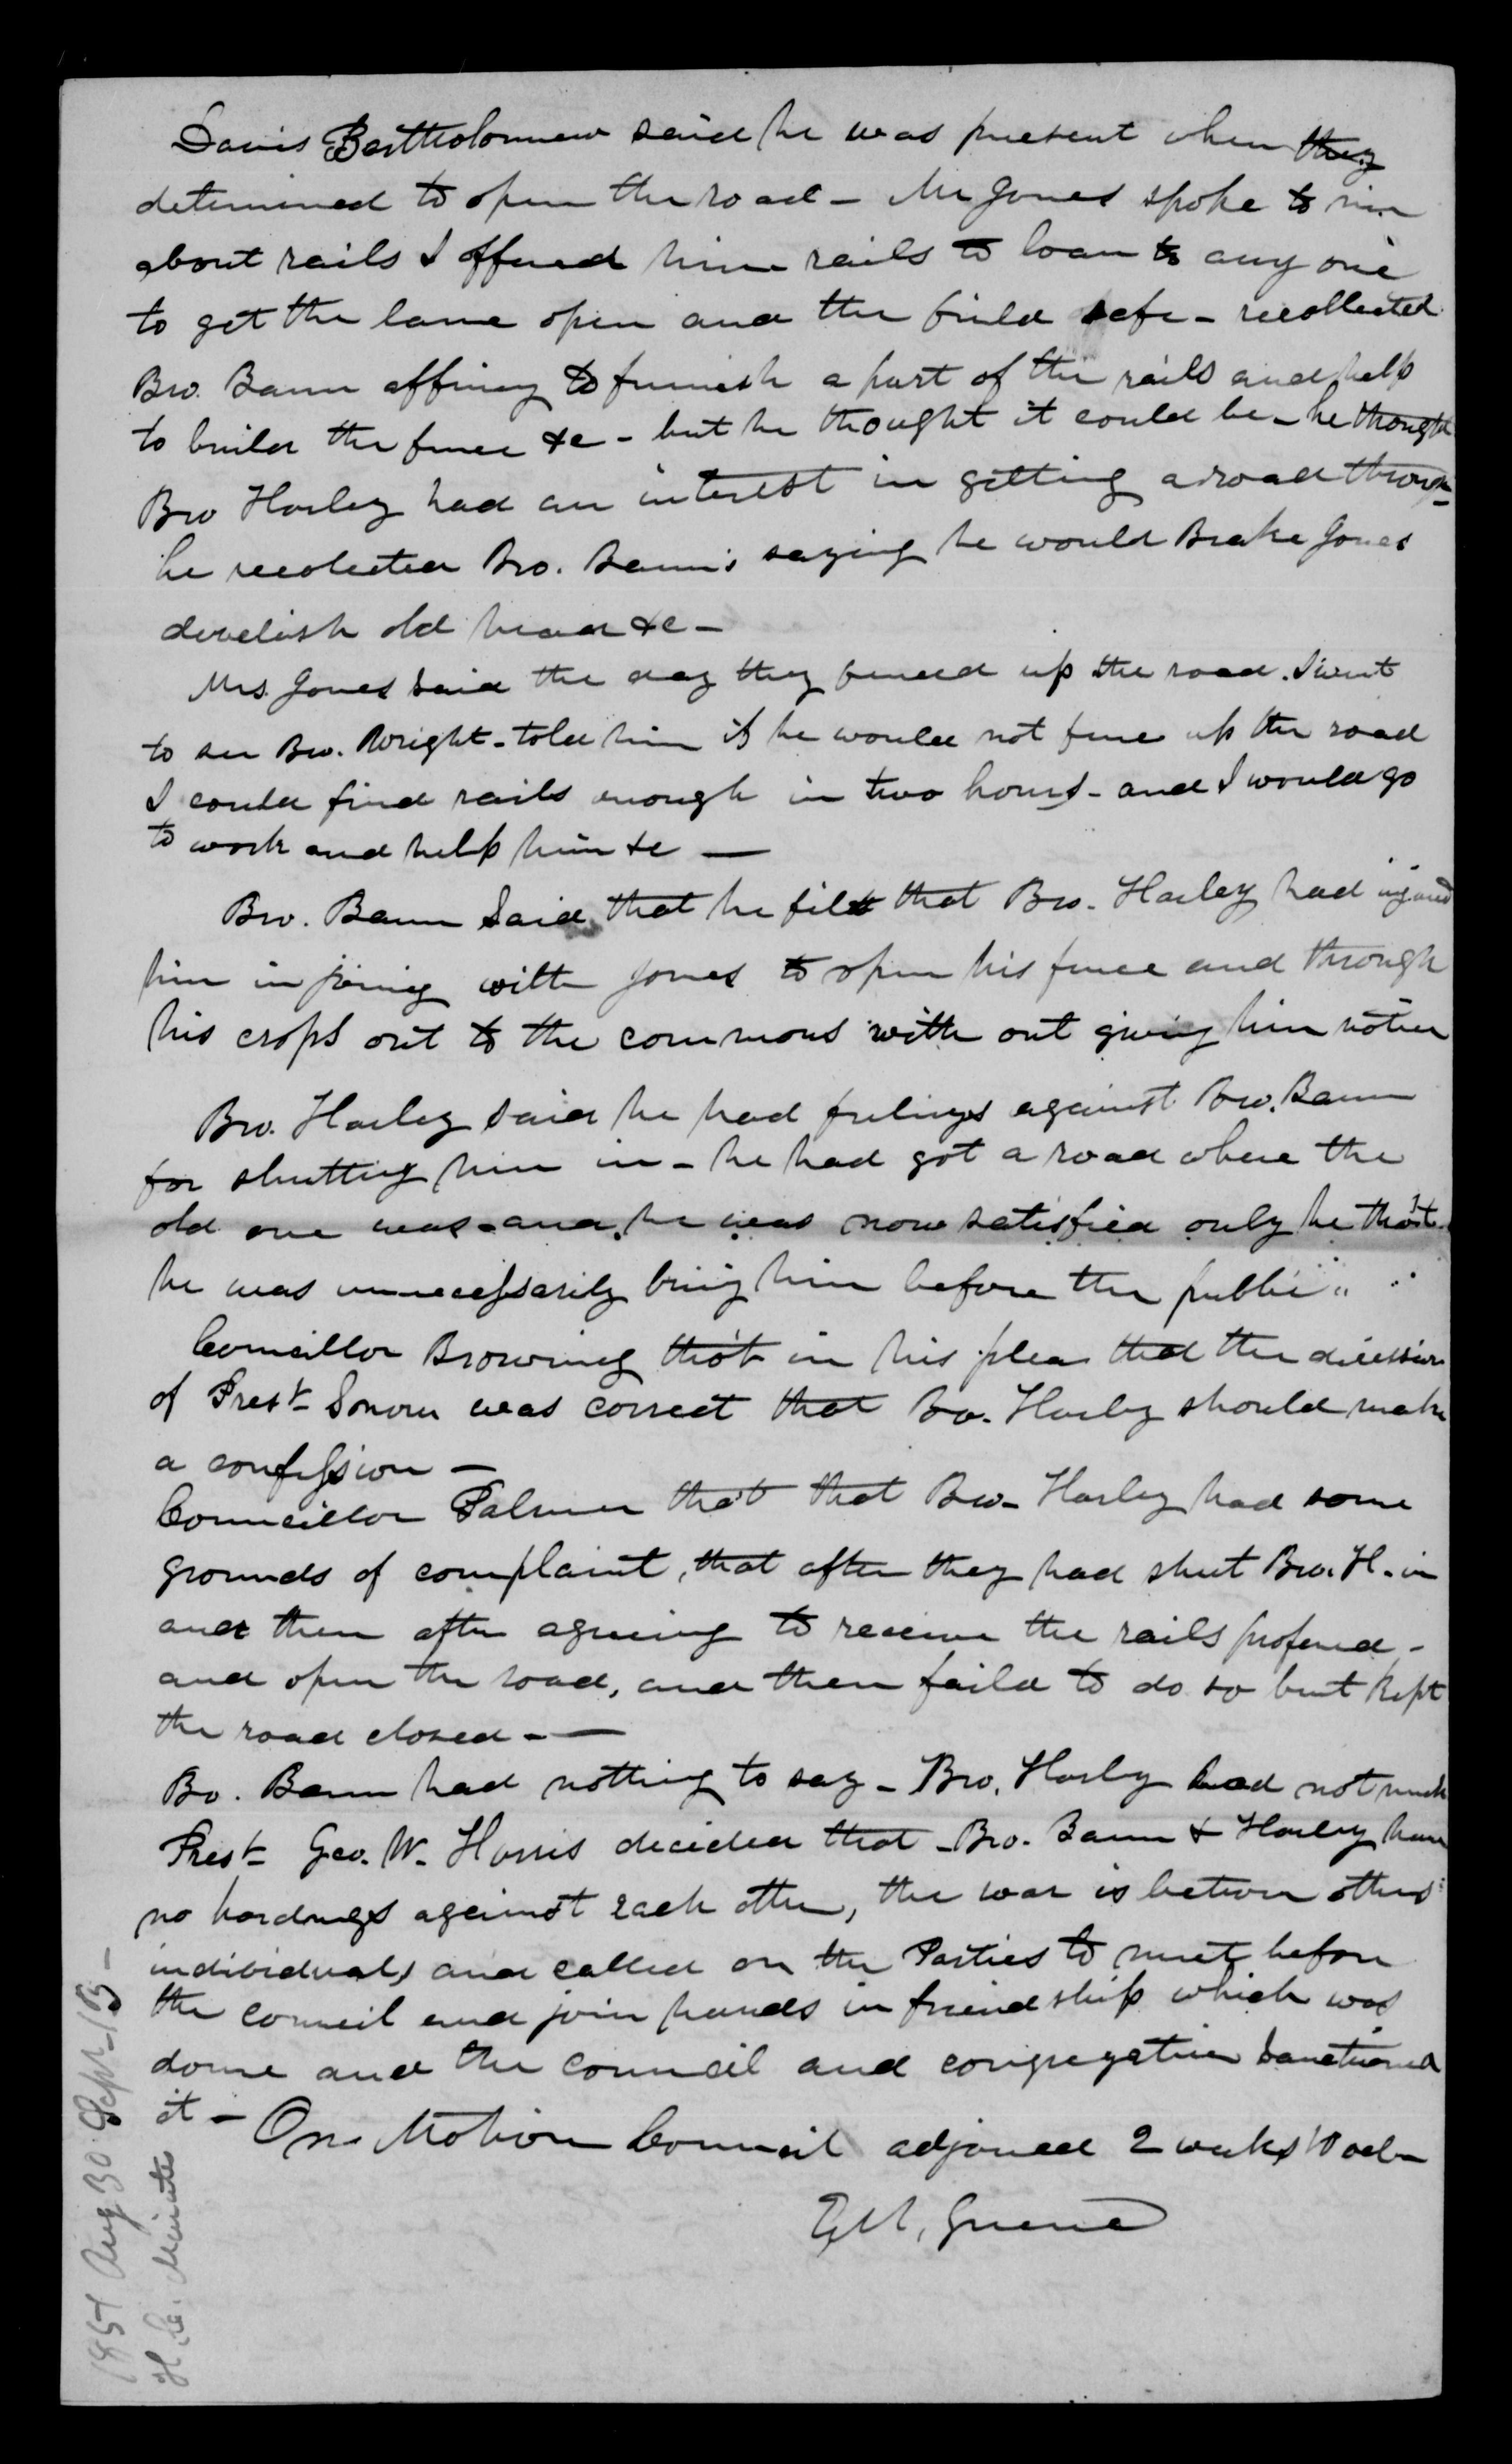 Davis Bartholomew said he was present when they
determined to open the road - Mr Jones spoke to him
about rails I offered him rails to loan to any one
to get the lane open and the field safe - recollected
Bro. Baum offering to furnish a part of the rails and help
to build the fence &c - but he thought it could be - he thought
Bro Harley had an interest in getting a road through -
he recolected Bro. Baum's saying he would Brake Jones
develish old head &c -
Mrs. Jones said the day they fenced up the road. I went
to see Bro. Wright - told him if he would not fence up the road
I could find rails enough in two hours - and I would go
to work and help him &c —
Bro. Baum Said that he felt that Bro. Harley had injured
him in joining with Jones to open his fence and through
his crops out to the commons with out giving him notice
Bro. Harley said he had feelings against Bro. Baum
for shutting him in - he had got a road where the
old one was - and he was now satisfied only he tho't
he was unnecessarily bring him before the public
Councillor Browning tho't in his plea that the decission
of Prest Snow was correct that Bro. Harley should make
a confession -
Councillor Palmer tho't that Bro - Harley had some
grounds of complaint, that after they had shut Bro. H. in
and then after agreeing to receive the rails profered -
and open the road, and then faild to do so but kept
the road closed - —
Bo. Baum had nothing to say - Bro. Harley had not much
Prest - Geo. W. Harris decided that - Bro. Baum & Harley have
no hardness against each other, the war is between others
individuals and called on the Parties to meet before
the council and join hands in friendship which was
done and the council and congregation Sanctioned
it - On Motion Council adjourned 2 weeks 10 ocl -
E M, Greene
1851 Aug 30 Sept - 13 -
H. C. Minutes